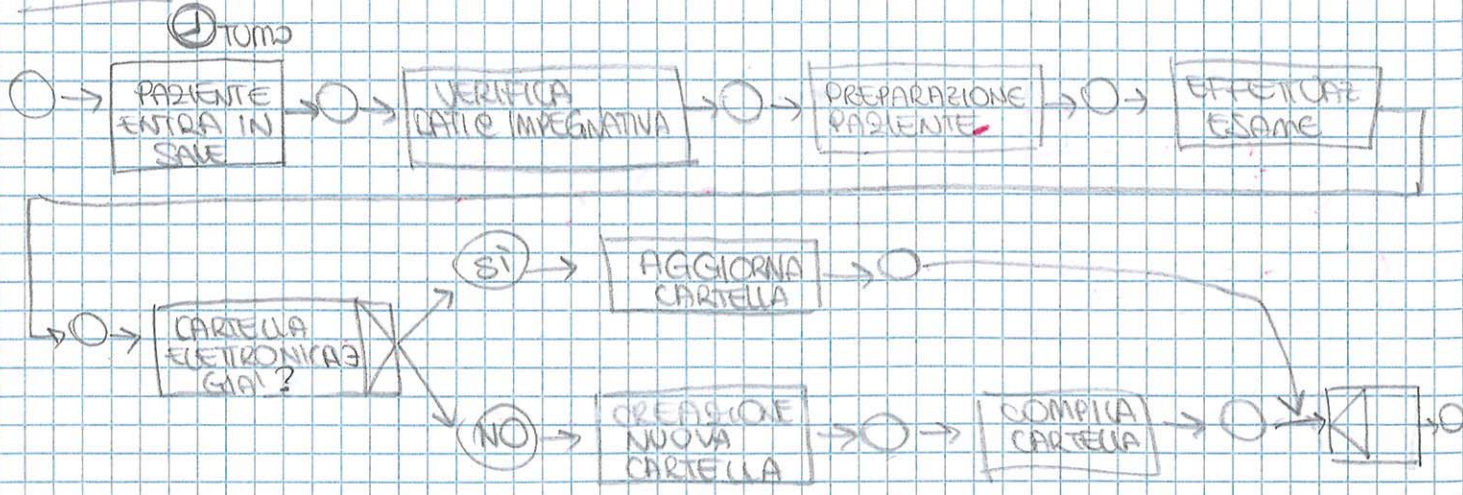 TURNO
PAZIENTE
ENTRA IN
SALE
VERIFICA
DATI e IMPEGNATIVA
PREPARAZIONE
PAZIENTE
EFFETTUAZ
ESAME
CARTELLA
ELETTRONICA ∃
GIA'?
SÌ
AGGIORNA
CARTELLA
NO
CREAZIONE
NUOVA
CARTELLA
COMPILA
CARTELLA